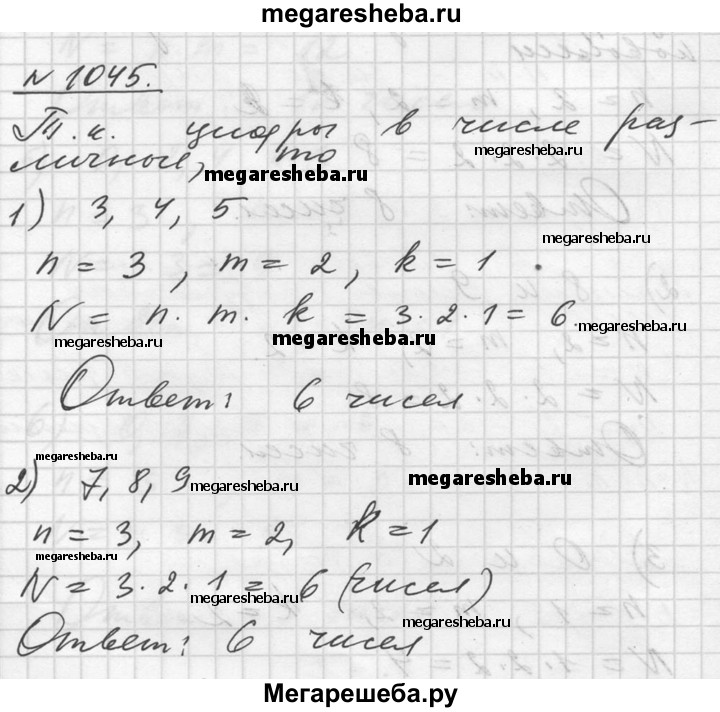 megaresheba.ru
N 1045.
Т.к. цифры в числе раз-
megaresheba.ru
личные, то
megaresheba.ru
1) 3, 4, 5.
n = 3, m = 2, k = 1.
megaresheba.ru
N = n · m · k = 3 · 2 · 1 = 6
megaresheba.ru
megaresheba.ru
megaresheba.ru
Ответ: 6 чисел
megaresheba.ru
2) 7, 8, 9
megaresheba.ru
megaresheba.ru
n = 3, m = 2, k = 1
megaresheba.ru
N = 3 · 2 · 1 = 6 (чисел)
megaresheba.ru
megaresheba.ru
Ответ: 6 чисел
Мегарешеба.ру